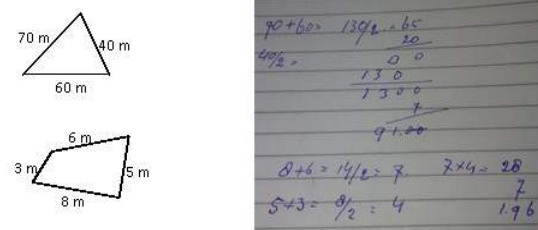 70 m
40 m
60 m
6 m
3 m
5 m
8 m
70+60= 130/2 = 65
20
40/2 =
0 0
1 3 0
1 3 0 0
7
91.00
8+6 = 14/2 = 7. 7×4 = 28
7
5+3 = 8/2 = 4
1.96